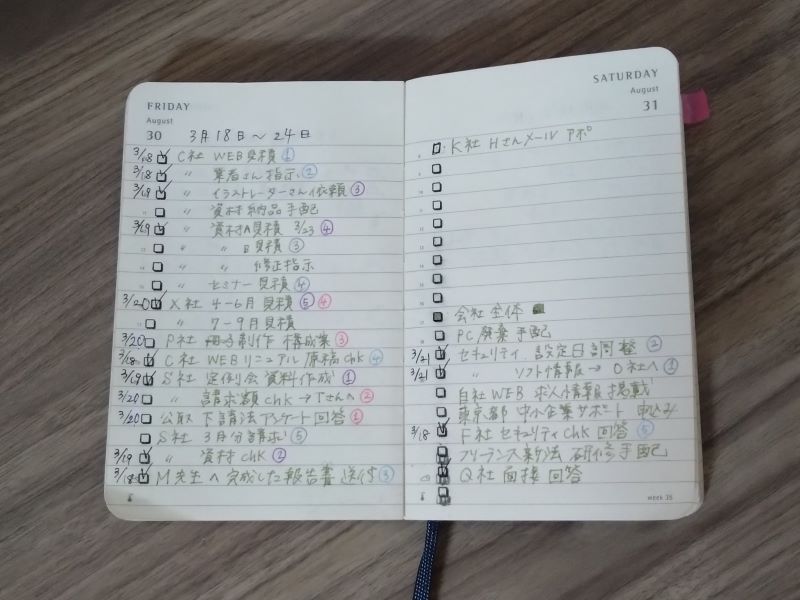 FRIDAY
August
30 3月18日～24日
3/18 C社 WEB見積 ①
3/18 〃 業者さん指示 ②
3/19 〃 イラストレーターさん依頼 ③
〃 資材納品手配
3/19 〃 資材A見積 3/23 ④
〃 〃 B見積 ③
〃 〃 修正指示
〃 セミナー見積 ④
3/20 X社 4-6月見積 ⑤ ④
〃 7-9月見積
3/20 P社 冊子制作 構成案 ③
3/18 C社 WEBリニュアル 原稿chk ④
3/19 S社 定例会資料作成 ①
3/20 〃 請求額chk→Tさんへ ②
3/20 公取 下請法アンケート回答 ①
S社 3月分請求 ⑤
3/19 〃 資材chk ②
3/18 M先生へ完成した報告書送付 ③
SATURDAY
August
31
K社 Hさんメール アポ
会社全体
PC廃棄手配
3/21 セキュリティ 設定日調整 ②
3/21 〃 ソフト情報→O社へ ①
自社WEB 求人情報掲載
東京都 中小企業サポート 申込み
3/18 F社 セキュリティchk 回答 ⑤
フリーランス新法 研修手配
Q社 面接 回答
week 35